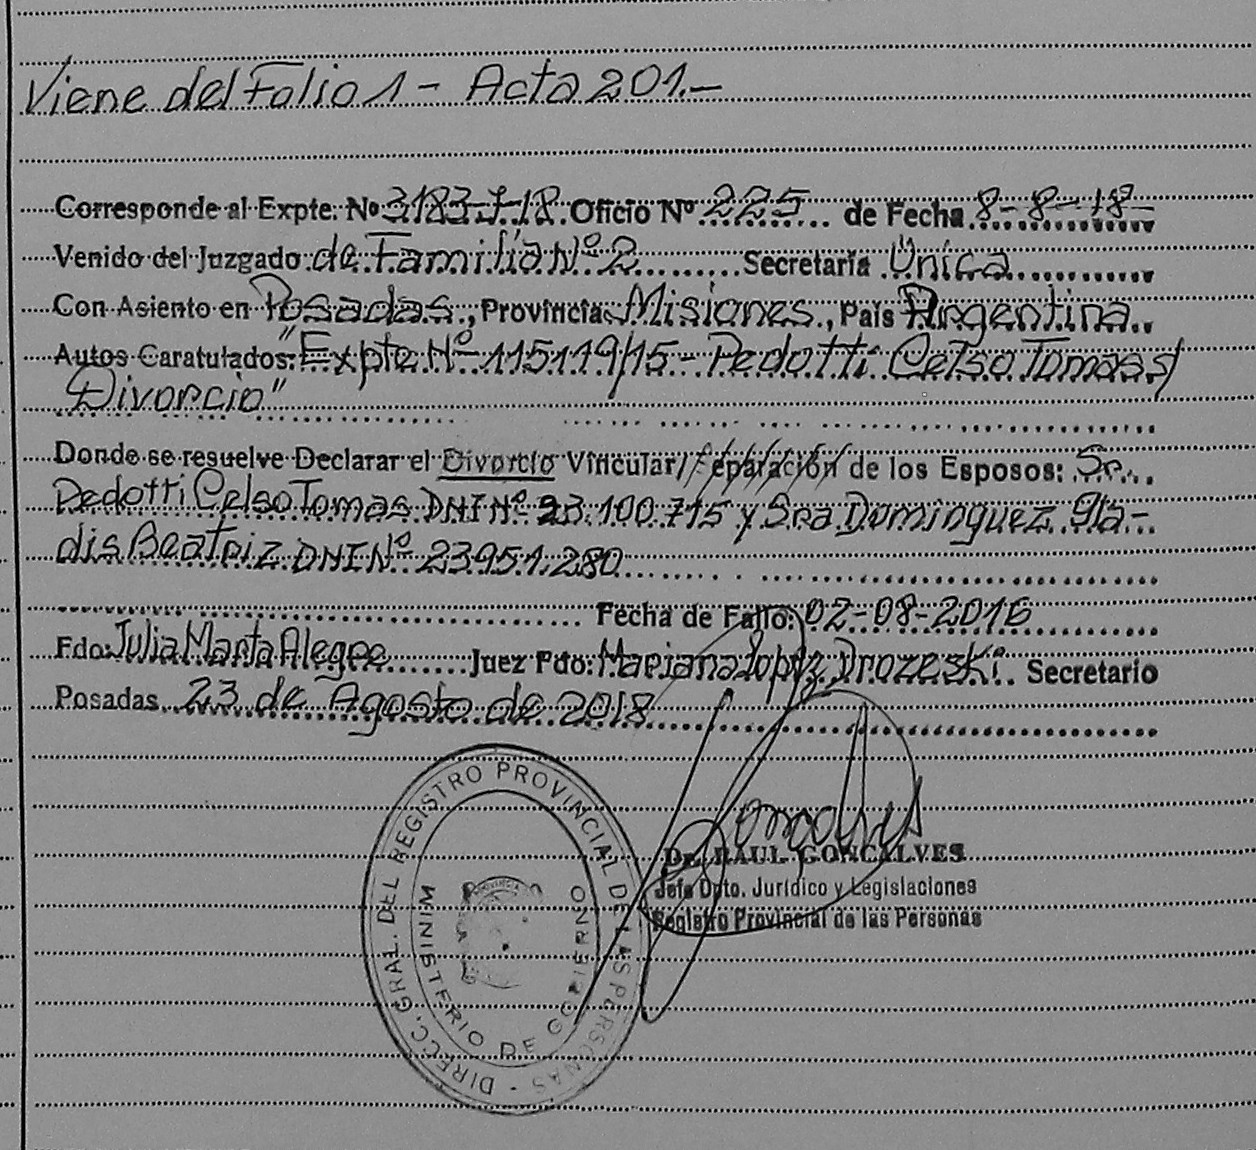 Viene del Folio 1 - Acta 201.-
Corresponde al Expte. Nº 3183-J-18. Oficio Nº 225 de Fecha 8-8-18-
Venido del Juzgado de Familia Nº 2 Secretaría Única
Con Asiento en Posadas, Provincia Misiones, País Argentina
Autos Caratulados: "Expte Nº 115119/15- Pedotti Celso Tomas s/
Divorcio"
Donde se resuelve Declarar el Divorcio Vincular/Separación de los Esposos: Sr.
Pedotti Celso Tomas DNI Nº 23.100.715 y Sra Dominguez Gla-
dis Beatriz DNI Nº 23951.280
Fecha de Fallo: 02-08-2016
Fdo: Julia Marta Alegre Juez Fdo: Mariana Lopez Drozeski. Secretario
Posadas 23 de Agosto de 2018
DIRECC. GRAL. DEL REGISTRO PROVINCIAL DE LAS PERSONAS -
MINISTERIO DE GOBIERNO
PROVINCIA
Dr. RAUL GONCALVES
Jefe Dpto. Jurídico y Legislaciones
Registro Provincial de las Personas